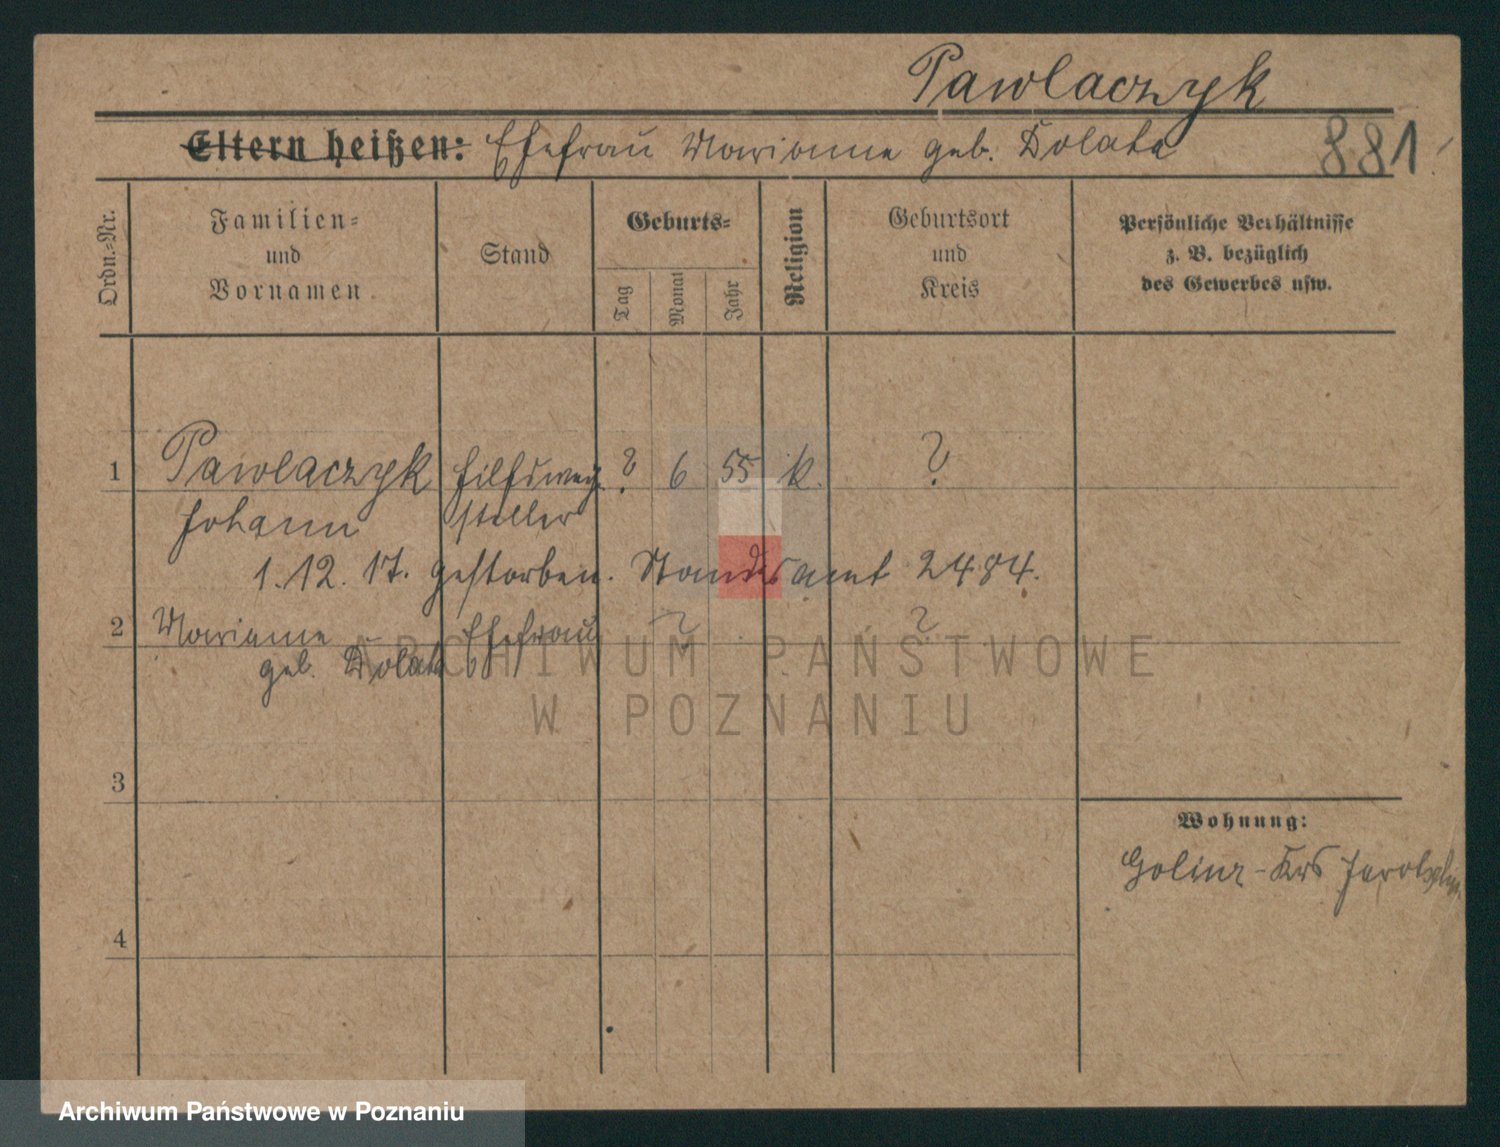 Pawlaczyk
Eltern heißen: Ehefrau Marianne geb. Dolata
881.
Ordn.-Nr.
Familien-
und
Vornamen
Stand
Geburts-
Tag
Monat
Jahr
Religion
Geburtsort
und
Kreis
Persönliche Verhältnisse
z. B. bezüglich
des Gewerbes usw.
1 Pawlaczyk Hilfswei. ? 6 55 k. ?
Johann steller
1.12.17. gestorben. Standesamt 2484.
2 Marianne Ehefrau ? ?
geb. Dolata
3
4
Wohnung:
Golina - Krs Jarotschin
ARCHIWUM PAŃSTWOWE
W POZNANIU
Archiwum Państwowe w Poznaniu